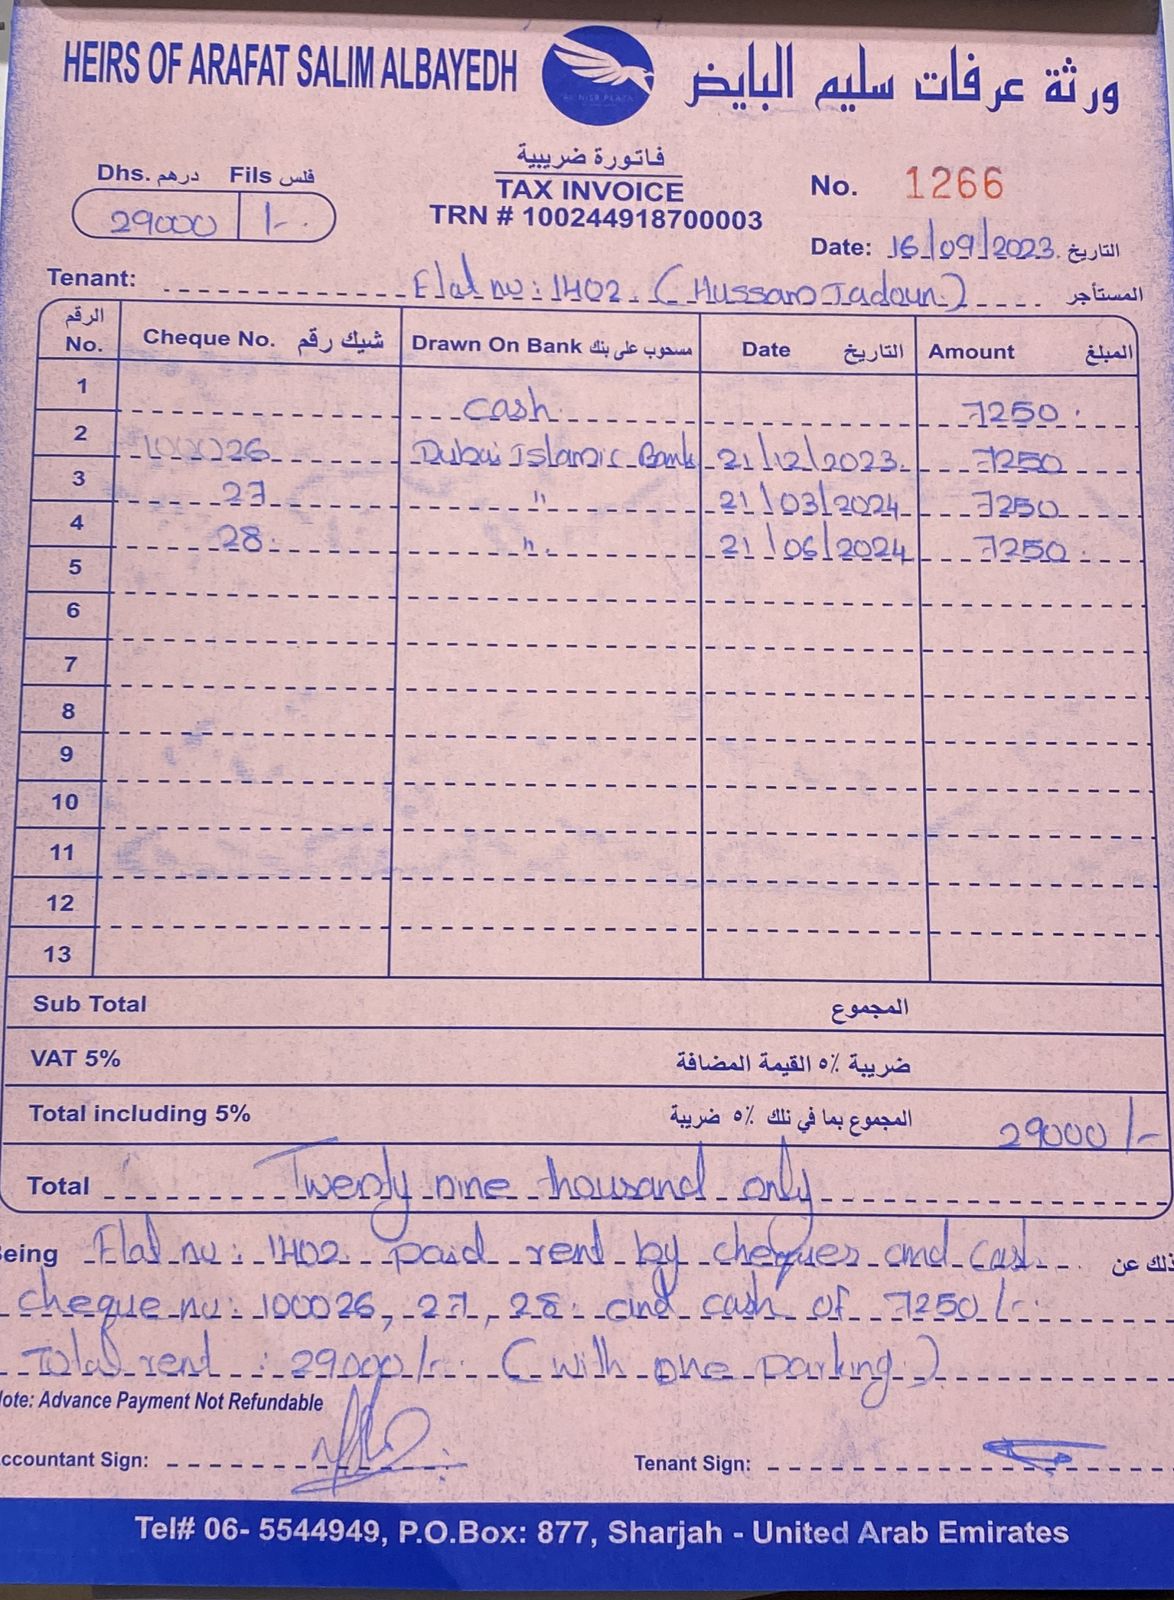 HEIRS OF ARAFAT SALIM ALBAYEDH
ورثة عرفات سليم البايض
فاتورة ضريبية
TAX INVOICE
TRN # 100244918700003
Dhs. درهم Fils فلس
29000 /-
No. 1266
Date: 16/09/2023 التاريخ
Tenant: Flat no: 1402 (Hussam Jadoun) المستأجر
الرقم No. Cheque No. شيك رقم Drawn On Bank مسحوب على بنك Date التاريخ Amount المبلغ
1 cash 7250
2 100026 Dubai Islamic Bank 21/12/2023 7250
3 27 " 21/03/2024 7250
4 28 " 21/06/2024 7250
5
6
7
8
9
10
11
12
13
Sub Total المجموع
VAT 5% ضريبة ٥٪ القيمة المضافة
Total including 5% المجموع بما في ذلك ٥٪ ضريبة 29000/-
Total Twenty nine thousand only
eing Flat no: 1402 paid rent by cheques and Cash ذلك عن
cheque no: 100026, 27, 28 and cash of 7250/-
Total rent : 29000/- (with one parking)
ote: Advance Payment Not Refundable
ccountant Sign: Tenant Sign:
Tel# 06- 5544949, P.O.Box: 877, Sharjah - United Arab Emirates